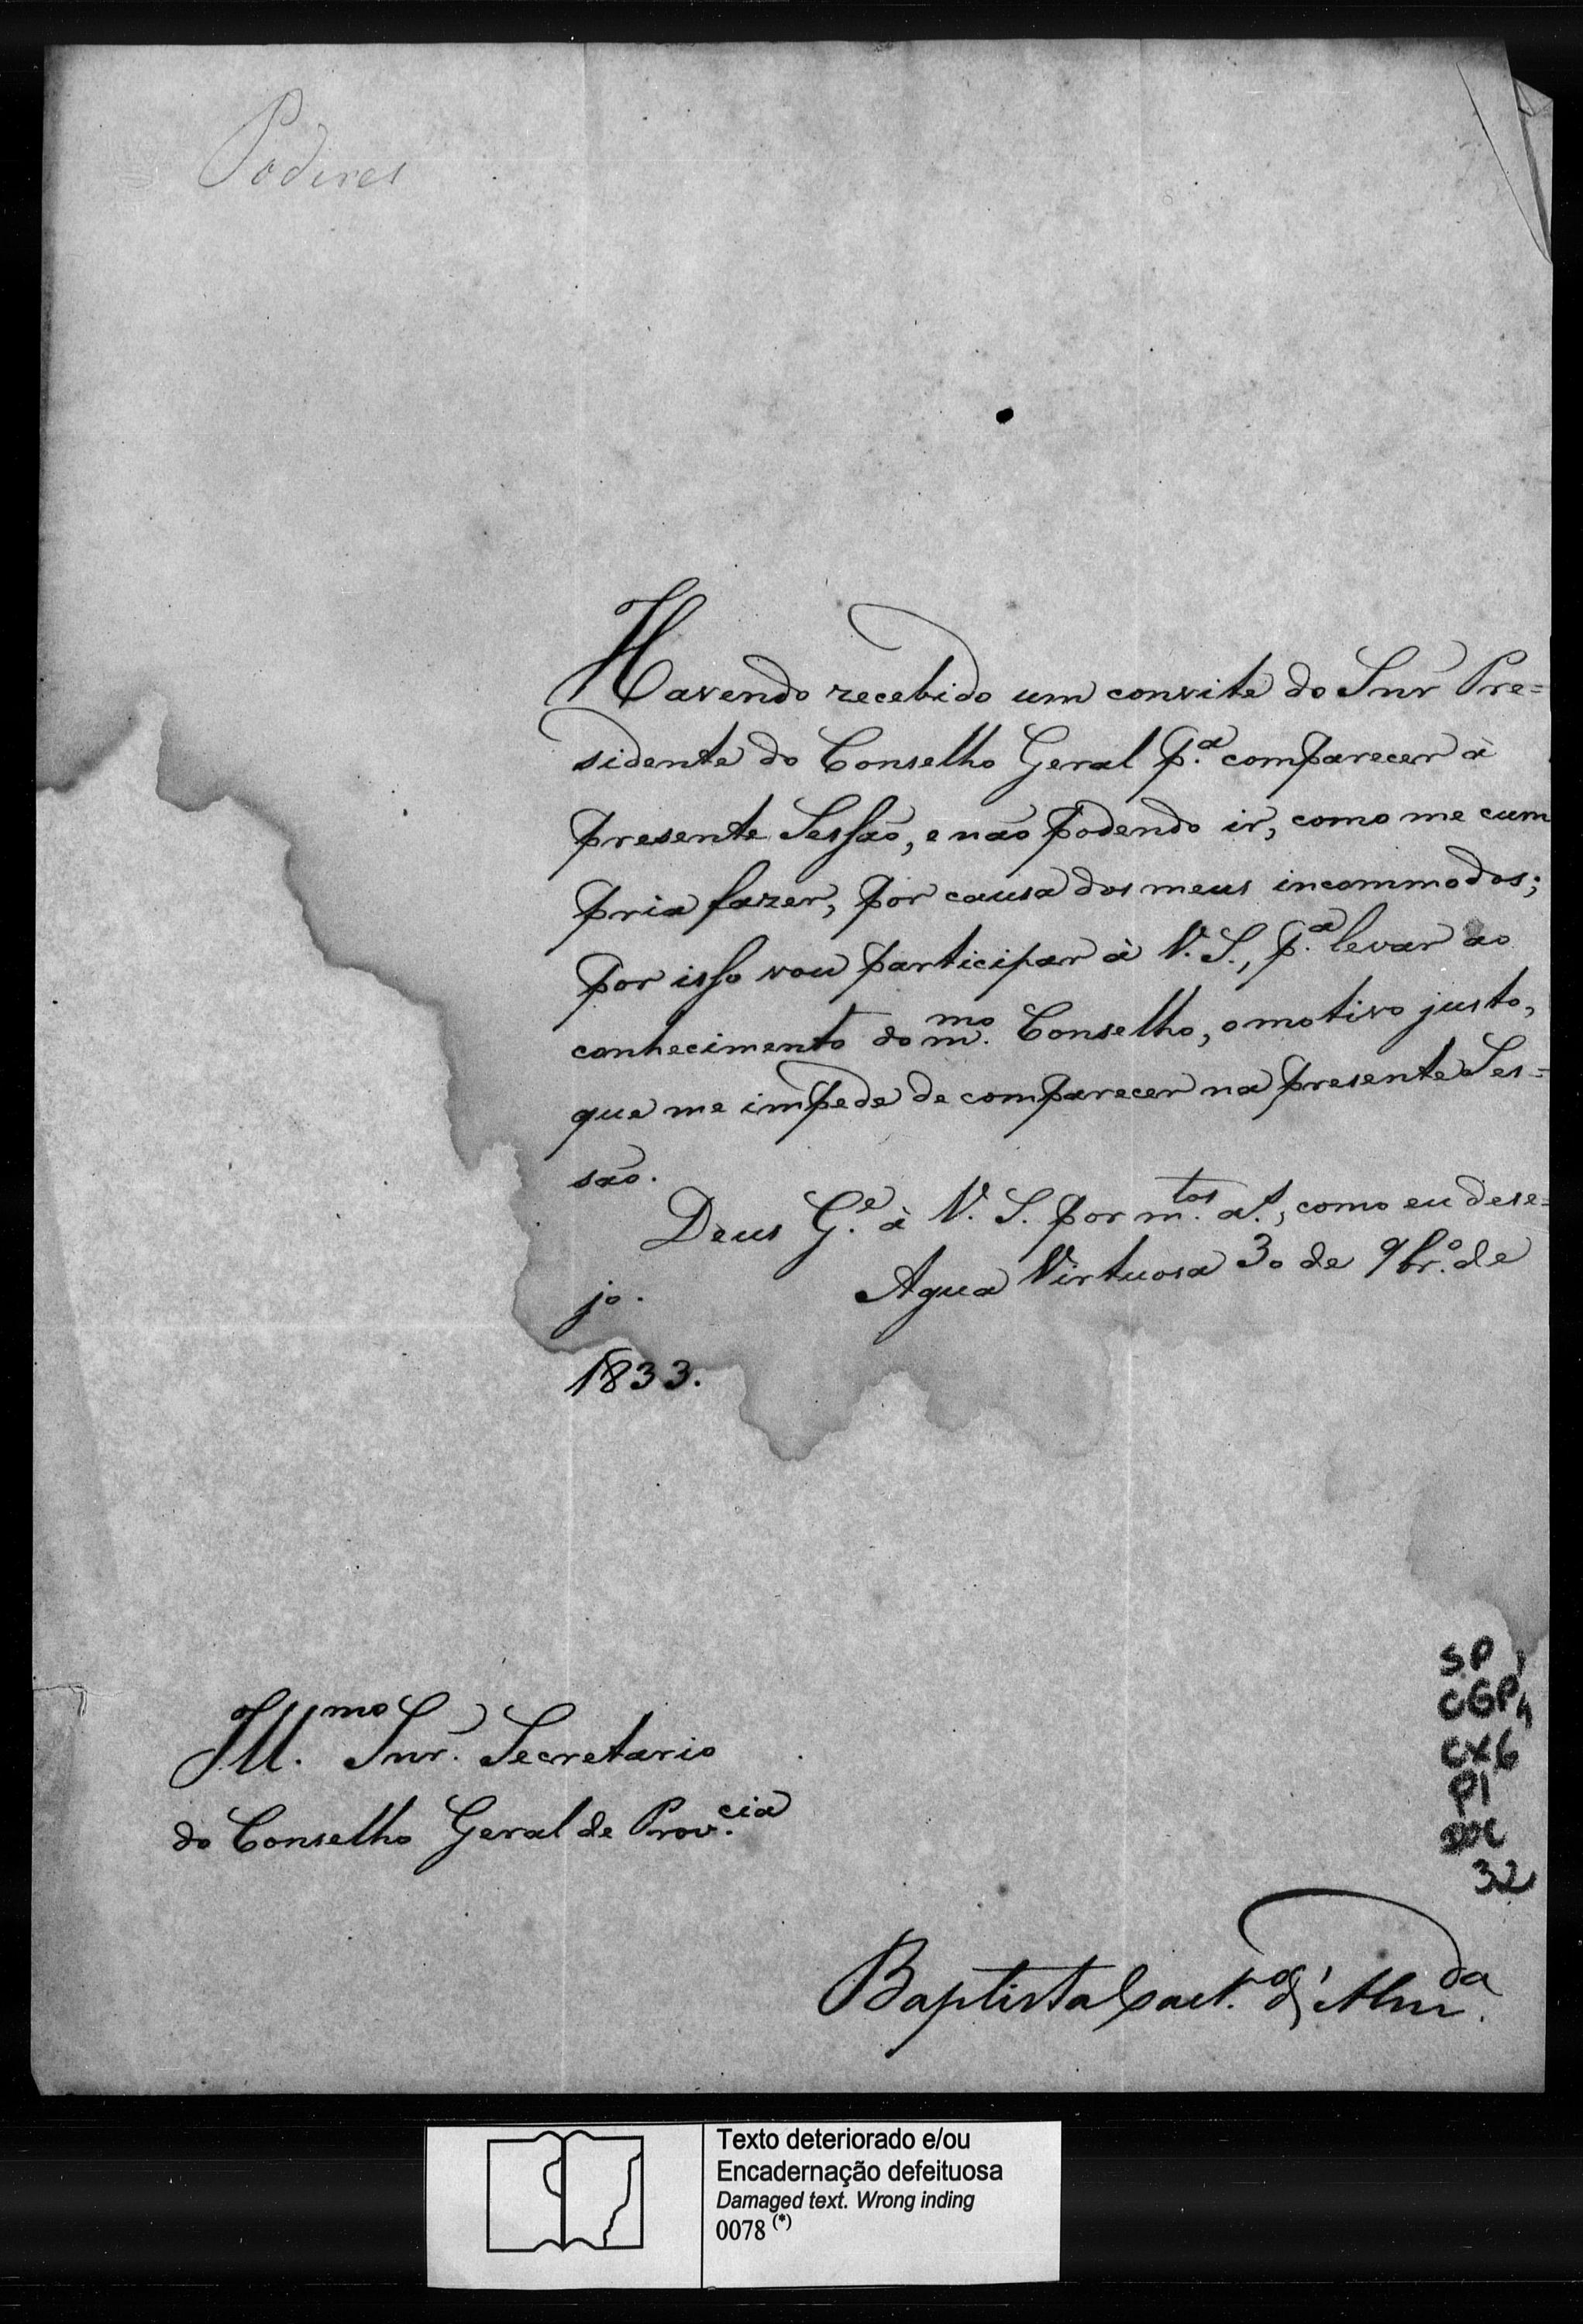 Poderes
Havendo recebido um convite do Snr Pre=
sidente do Conselho Geral p.a comparecer à
presente Sessão, e não podendo ir, como me cum
pria fazer, por causa dos meus incommodos;
por isso vou participar à V. S., p.a levar ao
conhecimento do m.mo Conselho, o motivo justo,
que me impede de comparecer na presente Ses=
são.
Deus G.e à V. S. por m.tos a.s, como eu dese=
jo. Agua Virtuosa 30 de 9br.o de
1833.
Ill.mo Snr. Secretario
do Conselho Geral de Prov.cia
SP
CGP1
CX6
P1
DOC
32
Baptista Caet.o d'Alm.da
Texto deteriorado e/ou
Encadernação defeituosa
Damaged text. Wrong inding
0078 (*)